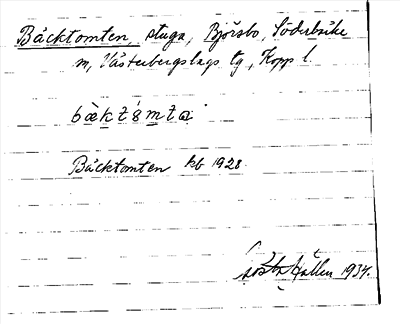 Bäcktomten, stuga, Björsbo, Söderbärke
m, Västerbergslags tg, Kopp l.
bæ̀któmta
Bäcktomten kb 1928
Gösta Hallen 1934.